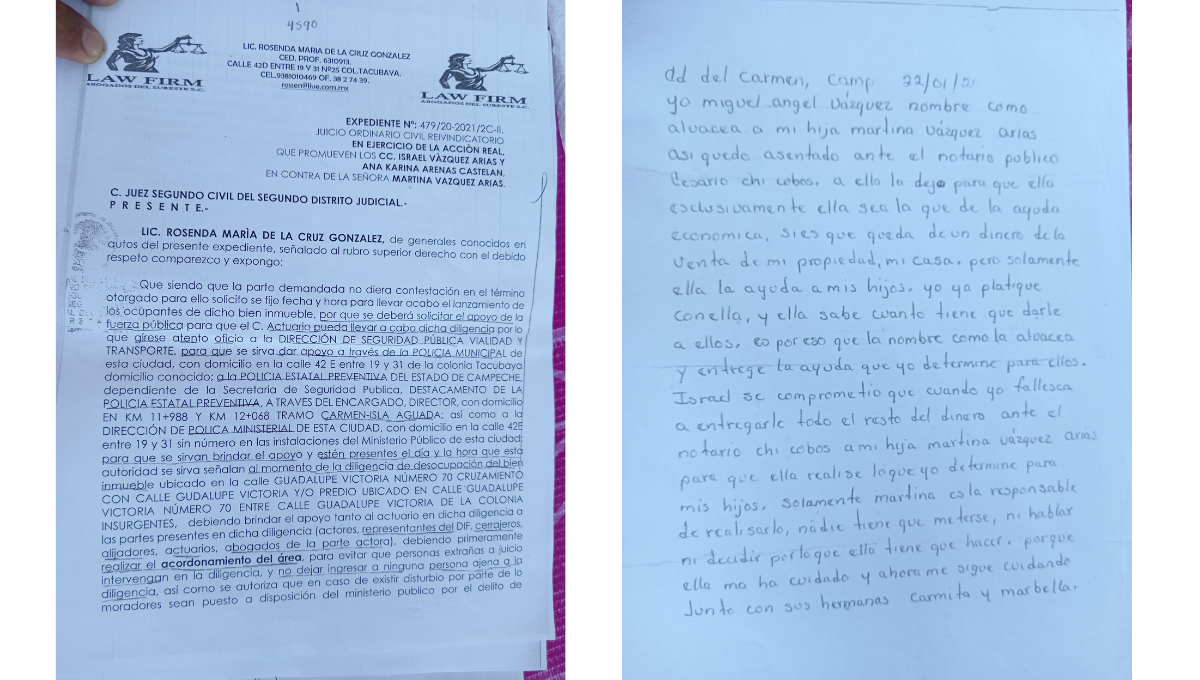 1
4590
LAW FIRM
ABOGADOS DEL SURESTE S.C.
LIC. ROSENDA MARIA DE LA CRUZ GONZALEZ
CED. PROF. 6310913.
CALLE 42D ENTRE 19 Y 31 Nº25 COL.TACUBAYA.
CEL.9381010469 OF. 38 2 74 39.
rossen@live.com.mx
LAW FIRM
ABOGADOS DEL SURESTE S.C.
EXPEDIENTE Nº: 479/20-2021/2C-II.
JUICIO ORDINARIO CIVIL REIVINDICATORIO
EN EJERCICIO DE LA ACCIÓN REAL,
QUE PROMUEVEN LOS CC. ISRAEL VÀZQUEZ ARIAS Y
ANA KARINA ARENAS CASTELAN.
EN CONTRA DE LA SEÑORA MARTINA VAZQUEZ ARIAS.
C. JUEZ SEGUNDO CIVIL DEL SEGUNDO DISTRITO JUDICIAL.-
P R E S E N T E.-
LIC. ROSENDA MARÌA DE LA CRUZ GONZALEZ, de generales conocidos en
autos del presente expediente, señalado al rubro superior derecho con el debido
respeto comparezco y expongo:
Que siendo que la parte demandada no diera contestación en el término
otorgado para ello solicito se fije fecha y hora para llevar acabo el lanzamiento de
los ocupantes de dicho bien inmueble, por que se deberá solicitar el apoyo de la
fuerza pública para que el C. Actuario pueda llevar a cabo dicha diligencia por lo
que gírese atento oficio a la DIRECCIÓN DE SEGURIDAD PÚBLICA VIALIDAD Y
TRANSPORTE, para que se sirva dar apoyo a través de la POLICIA MUNICIPAL de
esta ciudad, con domicilio en la calle 42 E entre 19 y 31 de la colonia Tacubaya
domicilio conocido; a la POLICIA ESTATAL PREVENTIVA DEL ESTADO DE CAMPECHE,
dependiente de la Secretaria de Seguridad Publica, DESTACAMENTO DE LA
POLICIA ESTATAL PREVENTIVA, A TRAVES DEL ENCARGADO, DIRECTOR, con domicilio
EN KM 11+988 Y KM 12+068 TRAMO CARMEN-ISLA AGUADA; así como a la
DIRECCIÓN DE POLICA MINISTERIAL DE ESTA CIUDAD, con domicilio en la calle 42E
entre 19 y 31 sin número en las instalaciones del Ministerio Público de esta ciudad;
para que se sirvan brindar el apoyo y estén presentes el día y la hora que esta
autoridad se sirva señalan al momento de la diligencia de desocupación del bien
inmueble ubicado en la calle GUADALUPE VICTORIA NÚMERO 70 CRUZAMIENTO
CON CALLE GUDALUPE VICTORIA Y/O PREDIO UBICADO EN CALLE GUADALUPE
VICTORIA NÚMERO 70 ENTRE CALLE GUADALUPE VICTORIA DE LA COLONIA
INSURGENTES, debiendo brindar el apoyo tanto al actuario en dicha diligencia a
las partes presentes en dicha diligencia (actores, representantes del DIF, cerrajeros,
alijadores, actuarios, abogados de la parte actora), debiendo primeramente
realizar el acordonamiento del área, para evitar que personas extrañas a juicio
intervengan en la diligencia, y no dejar ingresar a ninguna persona ajena a la
diligencia, así como se autoriza que en caso de existir disturbio por parte de lo
moradores sean puesto a disposición del ministerio publico por el delito de
dd del Carmen, Camp 22/01/
yo miguel angel Vázquez nombre como
alvacea a mi hija martina Vázquez arias
asi quedo asentado ante el notario publico
Cesario chi cobos. a ella la dejo para que ella
esclusivamente ella sea la que de la ayuda
economica, sies que queda de un dinero de la
Venta de mi propiedad, mi casa. pero solamente
ella la ayuda a mis hijos. yo ya platique
con ella, y ella sabe cuanto tiene que darle
a ellos, es por eso que la nombre como la alvacea
y entrege la ayuda que yo determine para ellos.
Israel se comprometio que cuando yo fallesca
a entregarle todo el resto del dinero ante el
notario chi cobos a mi hija martina vázquez arias
para que ella realise loque yo determine para
mis hijos. solamente martina es la responsable
de realisarlo, nadie tiene que meterse, ni hablar
ni decidir por lo que ella tiene que hacer. porque
ella me ha cuidado y ahora me sigue cuidando
Junto con sus hermanas Carmita y marbella.